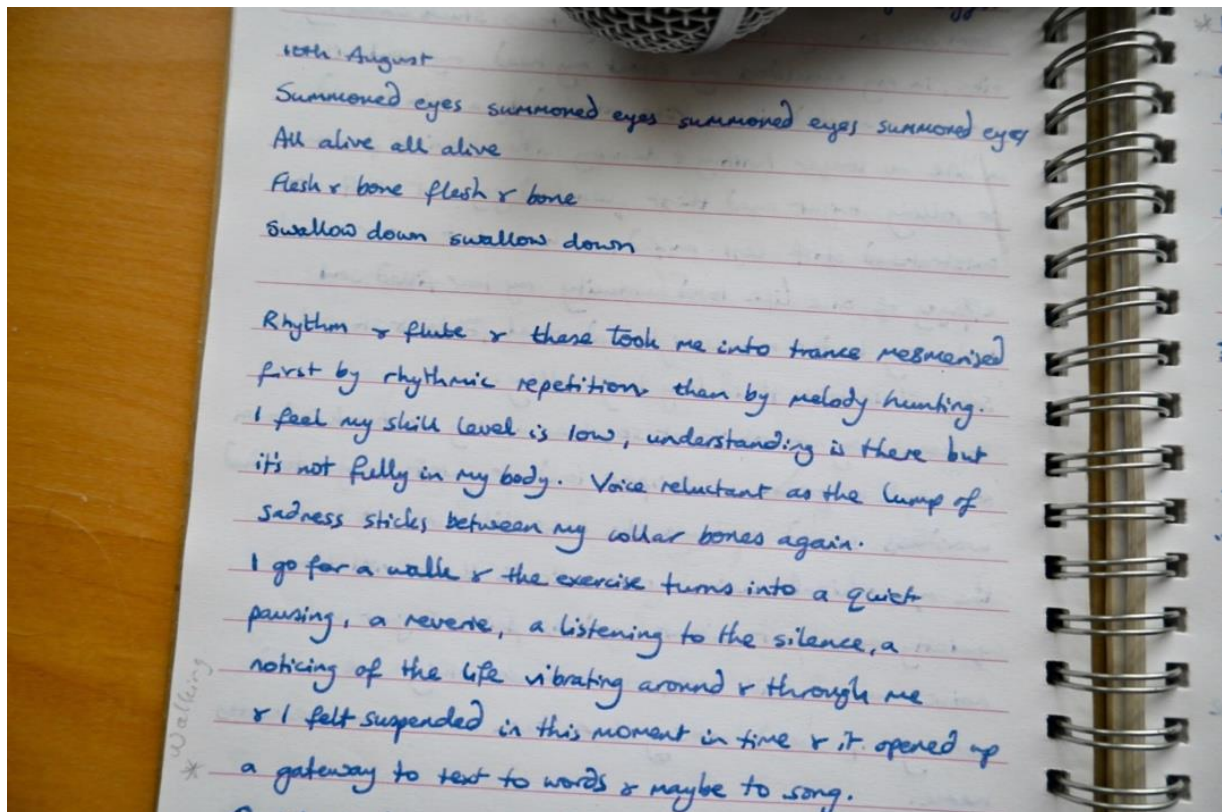 10th August
Summoned eyes summoned eyes summoned eyes summoned eyes
All alive all alive
Flesh & bone flesh & bone
Swallow down swallow down
Rhythm & flute & these took me into trance mesmerised
first by rhythmic repetition then by melody hunting.
I feel my skill level is low, understanding is there but
it's not fully in my body. Voice reluctant as the lump of
sadness sticks between my collar bones again.
I go for a walk & the exercise turns into a quiet
pausing, a reverie, a listening to the silence, a
noticing of the life vibrating around & through me
& I felt suspended in this moment in time & it opened up
a gateway to text to words & maybe to song.
* Walking